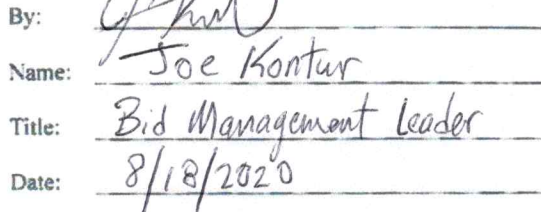 By:
Name: Joe Kontur
Title: Bid Management Leader
Date: 8/18/2020